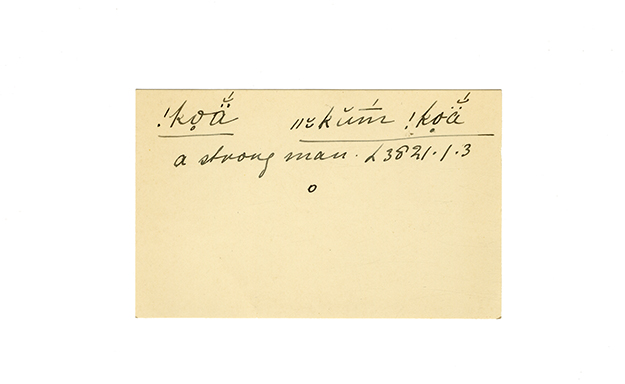 !kọä̆́ ǁkŭm̄ !kọä̆́
a strong man. L 3821.1.3
o